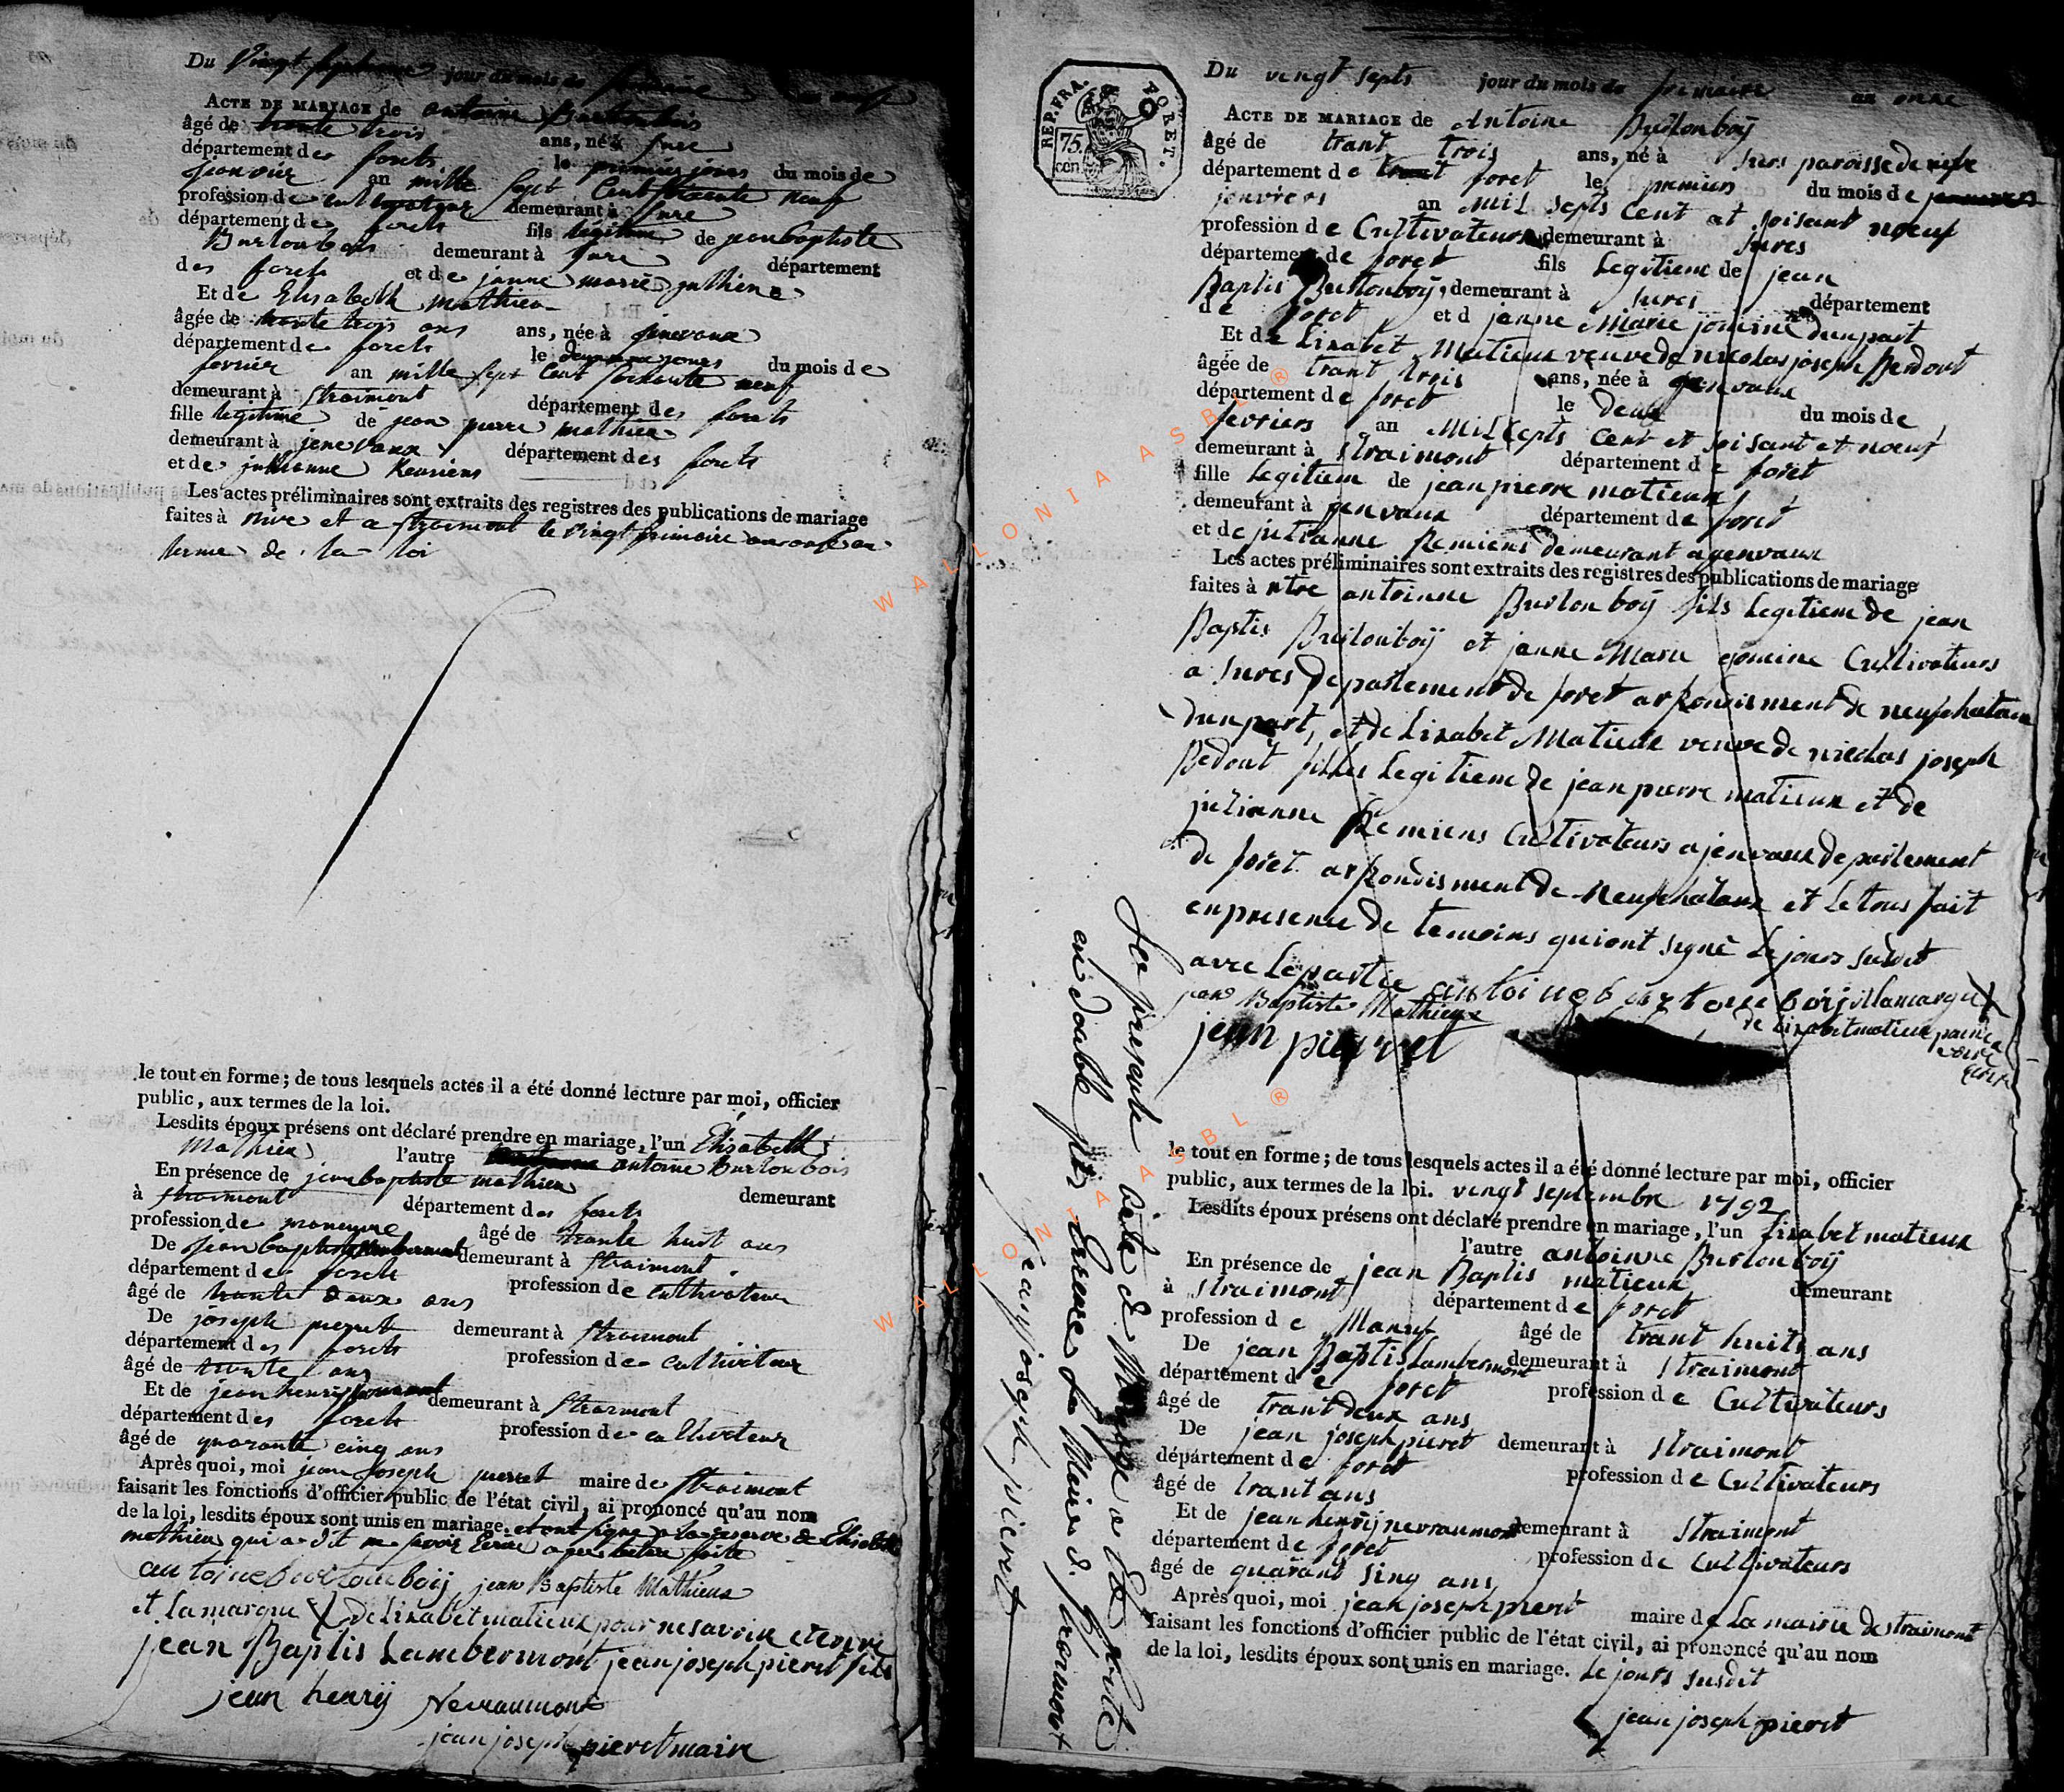 Du Vingt jour du mois de frimaire an
ACTE DE MARIAGE de antoine Burtonbois
âgé de trente trois ans, né à Sure
département des forets le premier jour du mois de
janvier an mille sept Cent soixante neuf
profession de cultivateur demeurant à Sure
département des forets fils légitime de jean baptiste
Burtonbois demeurant à Sure département
des forets et de janne marie
Et de Elisabeth mathieu
âgée de trente trois ans ans, née à jenevaux
département des forets le deuxieme jours du mois de
fevrier an mille sept Cent soixante neuf
demeurant à straimont département des forets
fille legitime de jean pierre mathieu
demeurant à jenevaux département des forets
et de julienne
Les actes préliminaires sont extraits des registres des publications de mariage
faites à nive et a straimont le vingt frimaire an onze au
terme de la loi
le tout en forme ; de tous lesquels actes il a été donné lecture par moi, officier
public, aux termes de la loi.
Lesdits époux présens ont déclaré prendre en mariage, l'un Elisabeth
Mathieu l'autre antoine Burtonbois
En présence de jean baptiste mathieu demeurant
à straimont département des forets
profession de manœuvre âgé de trente huit ans
De jean baptiste Lambermont demeurant à straimont
département des forets profession de cultivateur
âgé de trente deux ans
De joseph pierret demeurant à straimont
département des forets profession de cultivateur
âgé de trente ans
Et de jean henry demeurant à straimont
département des forets profession de cultivateur
âgé de quarante cinq ans
Après quoi, moi jean Joseph pierret maire de straimont
faisant les fonctions d'officier public de l'état civil, ai prononcé qu'au nom
de la loi, lesdits époux sont unis en mariage. et ont signé a la reserve de Elisabeth
mathieu qui a dit ne savoir Ecrire apres lecture faite
antoine burtonboij jean Baptiste Mathieux
et La marque X de Lizabet matieux pour ne savoire
jean Baptis Lambermont jean joseph pieret fils
jean henrij Nevraumont
jean joseph pieret maire
REP. FRA. 75. cen. FORET.
Du vengt septs jour du mois de frimaire an onze
ACTE DE MARIAGE de Antoine Burtonboij
âgé de trant trois ans, né à Sures paroisse de nive
département de foret le premiers du mois de
janviers an Mil septs Cent at soisant nœuf
profession de Cultivateurs demeurant à Sures
département de foret fils Legitieme de jean
Baptis Burtonboij, demeurant à Sures département
de foret et d janne Marie jomine dunpart
Et de Lizabet Matieux veuve de nicolas joseph Bedout
âgée de trant trois ans, née à genvaux
département de foret le deux du mois de
fevriers an Mil septs Cent et soisant et nœuf
demeurant à straimont département de foret
fille Legitiem de jean pierre matieux
demeurant à genvaux département de foret
et de julianne Remiens demeurant a genvaux
Les actes préliminaires sont extraits des registres des publications de mariage
faites à ntre antoinne Burtonboij fils Legetiem de jean
Baptis Burtonboij et janne Marie jomine Cultivateurs
a Sures departement de foret arrondisment de neufchataux
dun part, et de Lizabet Matieux veuve de nicolas joseph
Bedout filles Legitieme de jean pierre matieux et de
julianne Remiens Cultivateurs a jenvaux departement
de foret arrondisment de Neufchataux et Le tous fait
en presence de temoins qui ont signé Le jours sudit
avec Le partie antoine burtonboij et La marque X
jean Baptiste Mathieux de Lizabet matieux
jean pierret
le tout en forme ; de tous lesquels actes il a été donné lecture par moi, officier
public, aux termes de la loi. vengt septembre 1792
Lesdits époux présens ont déclaré prendre en mariage, l'un Lizabet matieux
l'autre antoinne Burtonboij
En présence de jean Baptis matieux demeurant
à straimont département de foret
profession de Maneuf âgé de trant huits ans
De jean Baptis Lambermont demeurant à straimont
département de foret profession de Cultivateurs
âgé de trant deux ans
De jean joseph pieret demeurant à straimont
département de foret profession de Cultivateurs
âgé de trant ans
Et de jean henrij nevraumont demeurant à straimont
département de foret profession de Cultivateurs
âgé de quarant sinq ans
Après quoi, moi jean joseph pieret maire de La mairie de straimont
faisant les fonctions d'officier public de l'état civil, ai prononcé qu'au nom
de la loi, lesdits époux sont unis en mariage. Le jours susdit
jean joseph pieret
La presente Cote &
en double par Maire d. straimont
jean joseph pieret
WALLONIA ASBL ®
WALLONIA ASBL ®